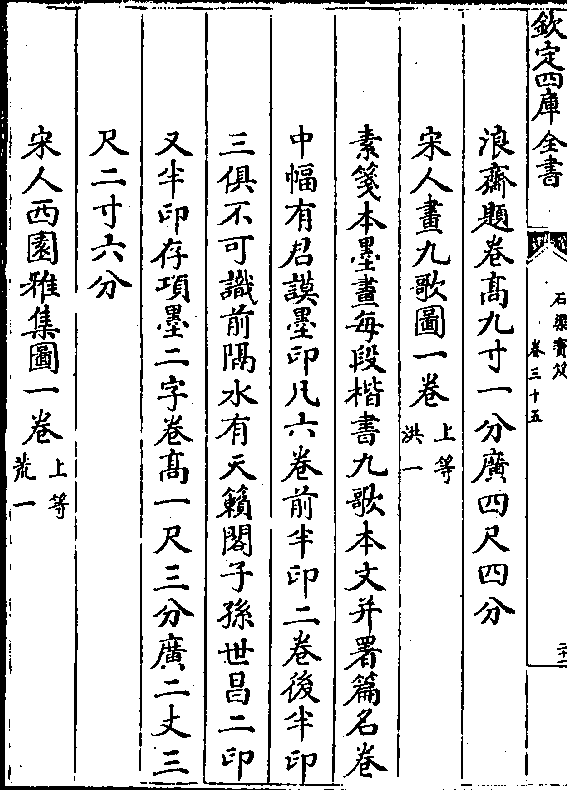 欽定四庫全書
石渠寳笈
卷三十五
浪齋題卷髙九寸一分廣四尺四分
宋人畫九歌圖一卷 上等 洪一
素箋本墨畫每段楷書九歌本文并署篇名卷
中幅有君謨墨印凡六卷前半印二卷後半印
三俱不可識前隔水有天籟閣子孫世昌二印
又半印存項墨二字卷髙一尺三分廣二丈三
尺二寸六分
宋人西園雅集圖一卷 上等 荒一